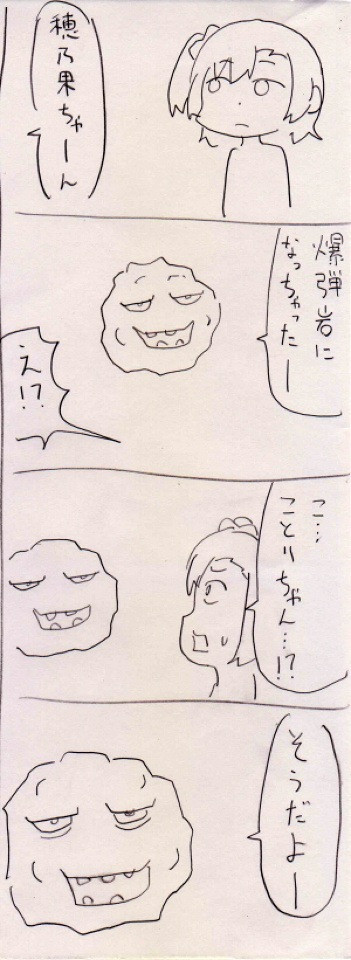 穂乃果ちゃーん
爆弾岩に
なっちゃったー
え!?
こ…
ことりちゃん…!?
そうだよー